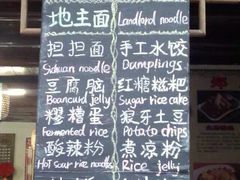 地主面 Landlord noodle
担担面 手工水饺
Sichuan noodle Dumplings
豆腐脑 红糖糍粑
Beancurd jelly Sugar rice cake
醪糟蛋 狼牙土豆
Fermented rice Potato chips
酸辣粉 煮凉粉
Hot sour rice noodles Rice jelly